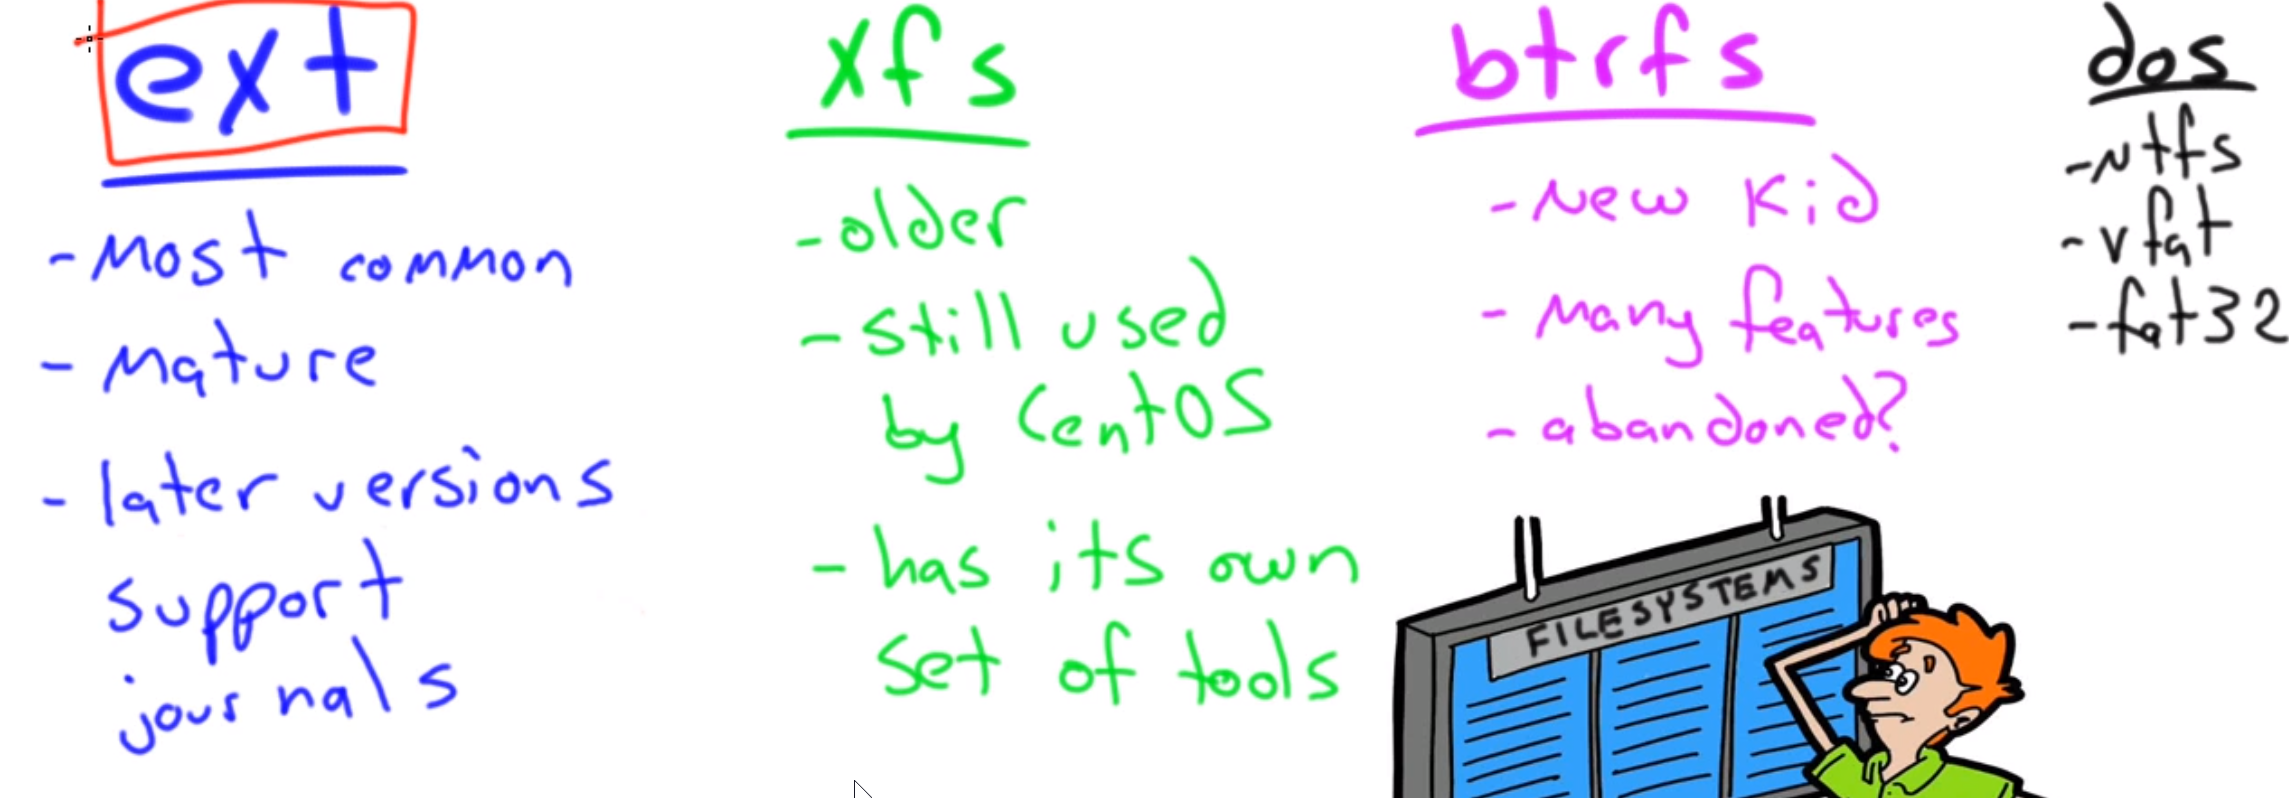 ext
- Most common
- Mature
- later versions
support
journals
xfs
- older
- still used
by CentOS
- has its own
set of tools
btrfs
- New Kid
- Many features
- abandoned?
dos
- ntfs
- vfat
- fat32
FILESYSTEMS